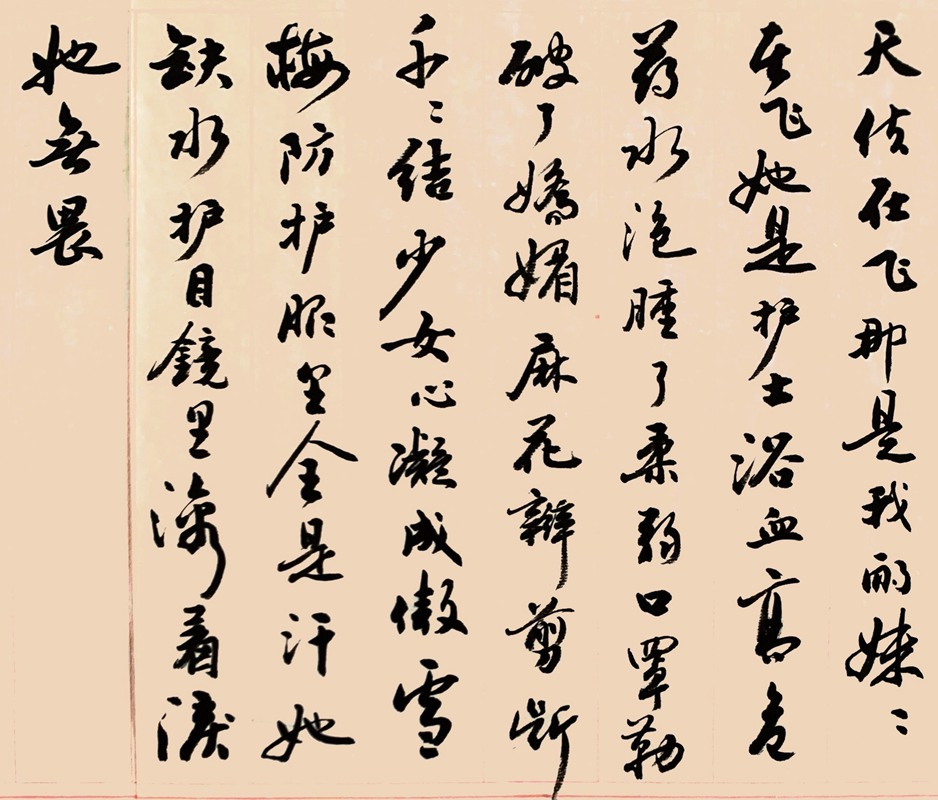 天使在飞那是我的妹〻
在飞她是护士浴血高危
药水泡腫了柔弱口罩勒
破了嬌媚麻花辫剪断
千〻结少女心凝成傲雪
梅防护服里全是汗她
缺水护目鏡里着淚
她無畏